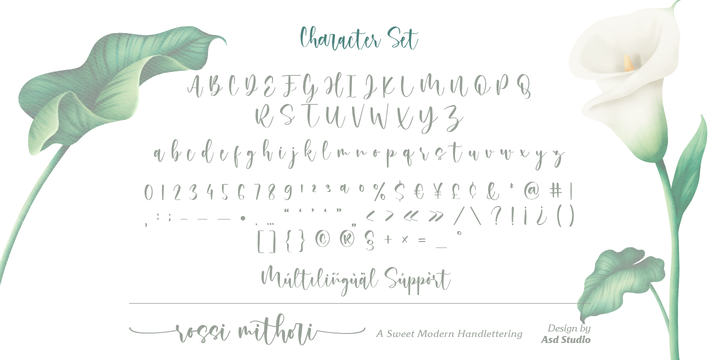 Character Set
A B C D E F G H I J K L M N O P Q
R S T U V W X Y Z
a b c d e f g h i j k l m n o p q r s t u v w x y z
0 1 2 3 4 5 6 7 8 9 ¹ ² ³ ª º % $ € ¥ £ ¢ & * @ # |
, : ; - – — • . … “ ‘ ’ ‘ ” „ < > « » / \ ? ! ¡ ¿ ( )
[ ] { } © ® § + × = _ °
Múltilingùäl Súppòrt
rossi mithori
A Sweet Modern Handlettering
Design by
Asd Studio